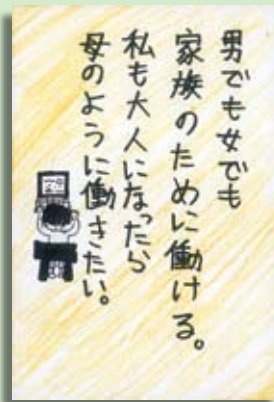 男でも女でも
家族のために働ける。
私も大人になったら
母のように働きたい。